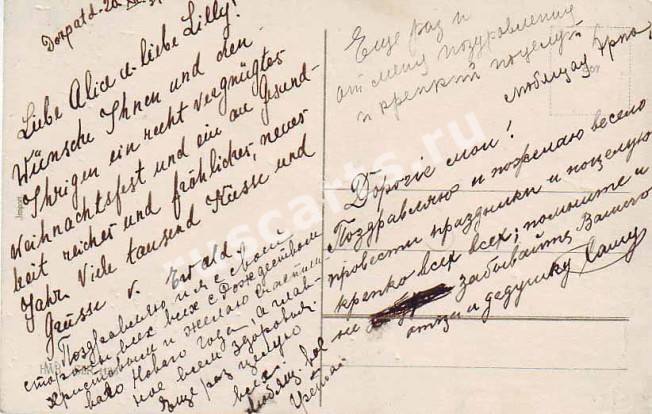 Dorpat d. 20
Liebe Alice u. liebe Lilly!
Wünsche Ihnen und den
Ihrigen ein recht vergnügtes
Weihnachtsfest und ein an Gesund-
heit reicher und fröhliches, neues
Jahr. Viele tausend Küsse und
Grüsse v. Ewald.
Поздравляю и я с своей
стороны всех вас с Рождеством
Христовым и желаю счастли
ваго Новаго Года, а глав
ное всем здоровия.
Еще раз целую
всех
Любящ. вас
Еще раз и
от меня поздравления
и крепкий поцелуй
любящая
Дорогіе мои!
Поздравляю и пожелаю весело
провести праздники и поцелую
крепко всех всех; помните и
не забывайте Вашего
отца и дедушку Сашу
Import
ruscarts.ru